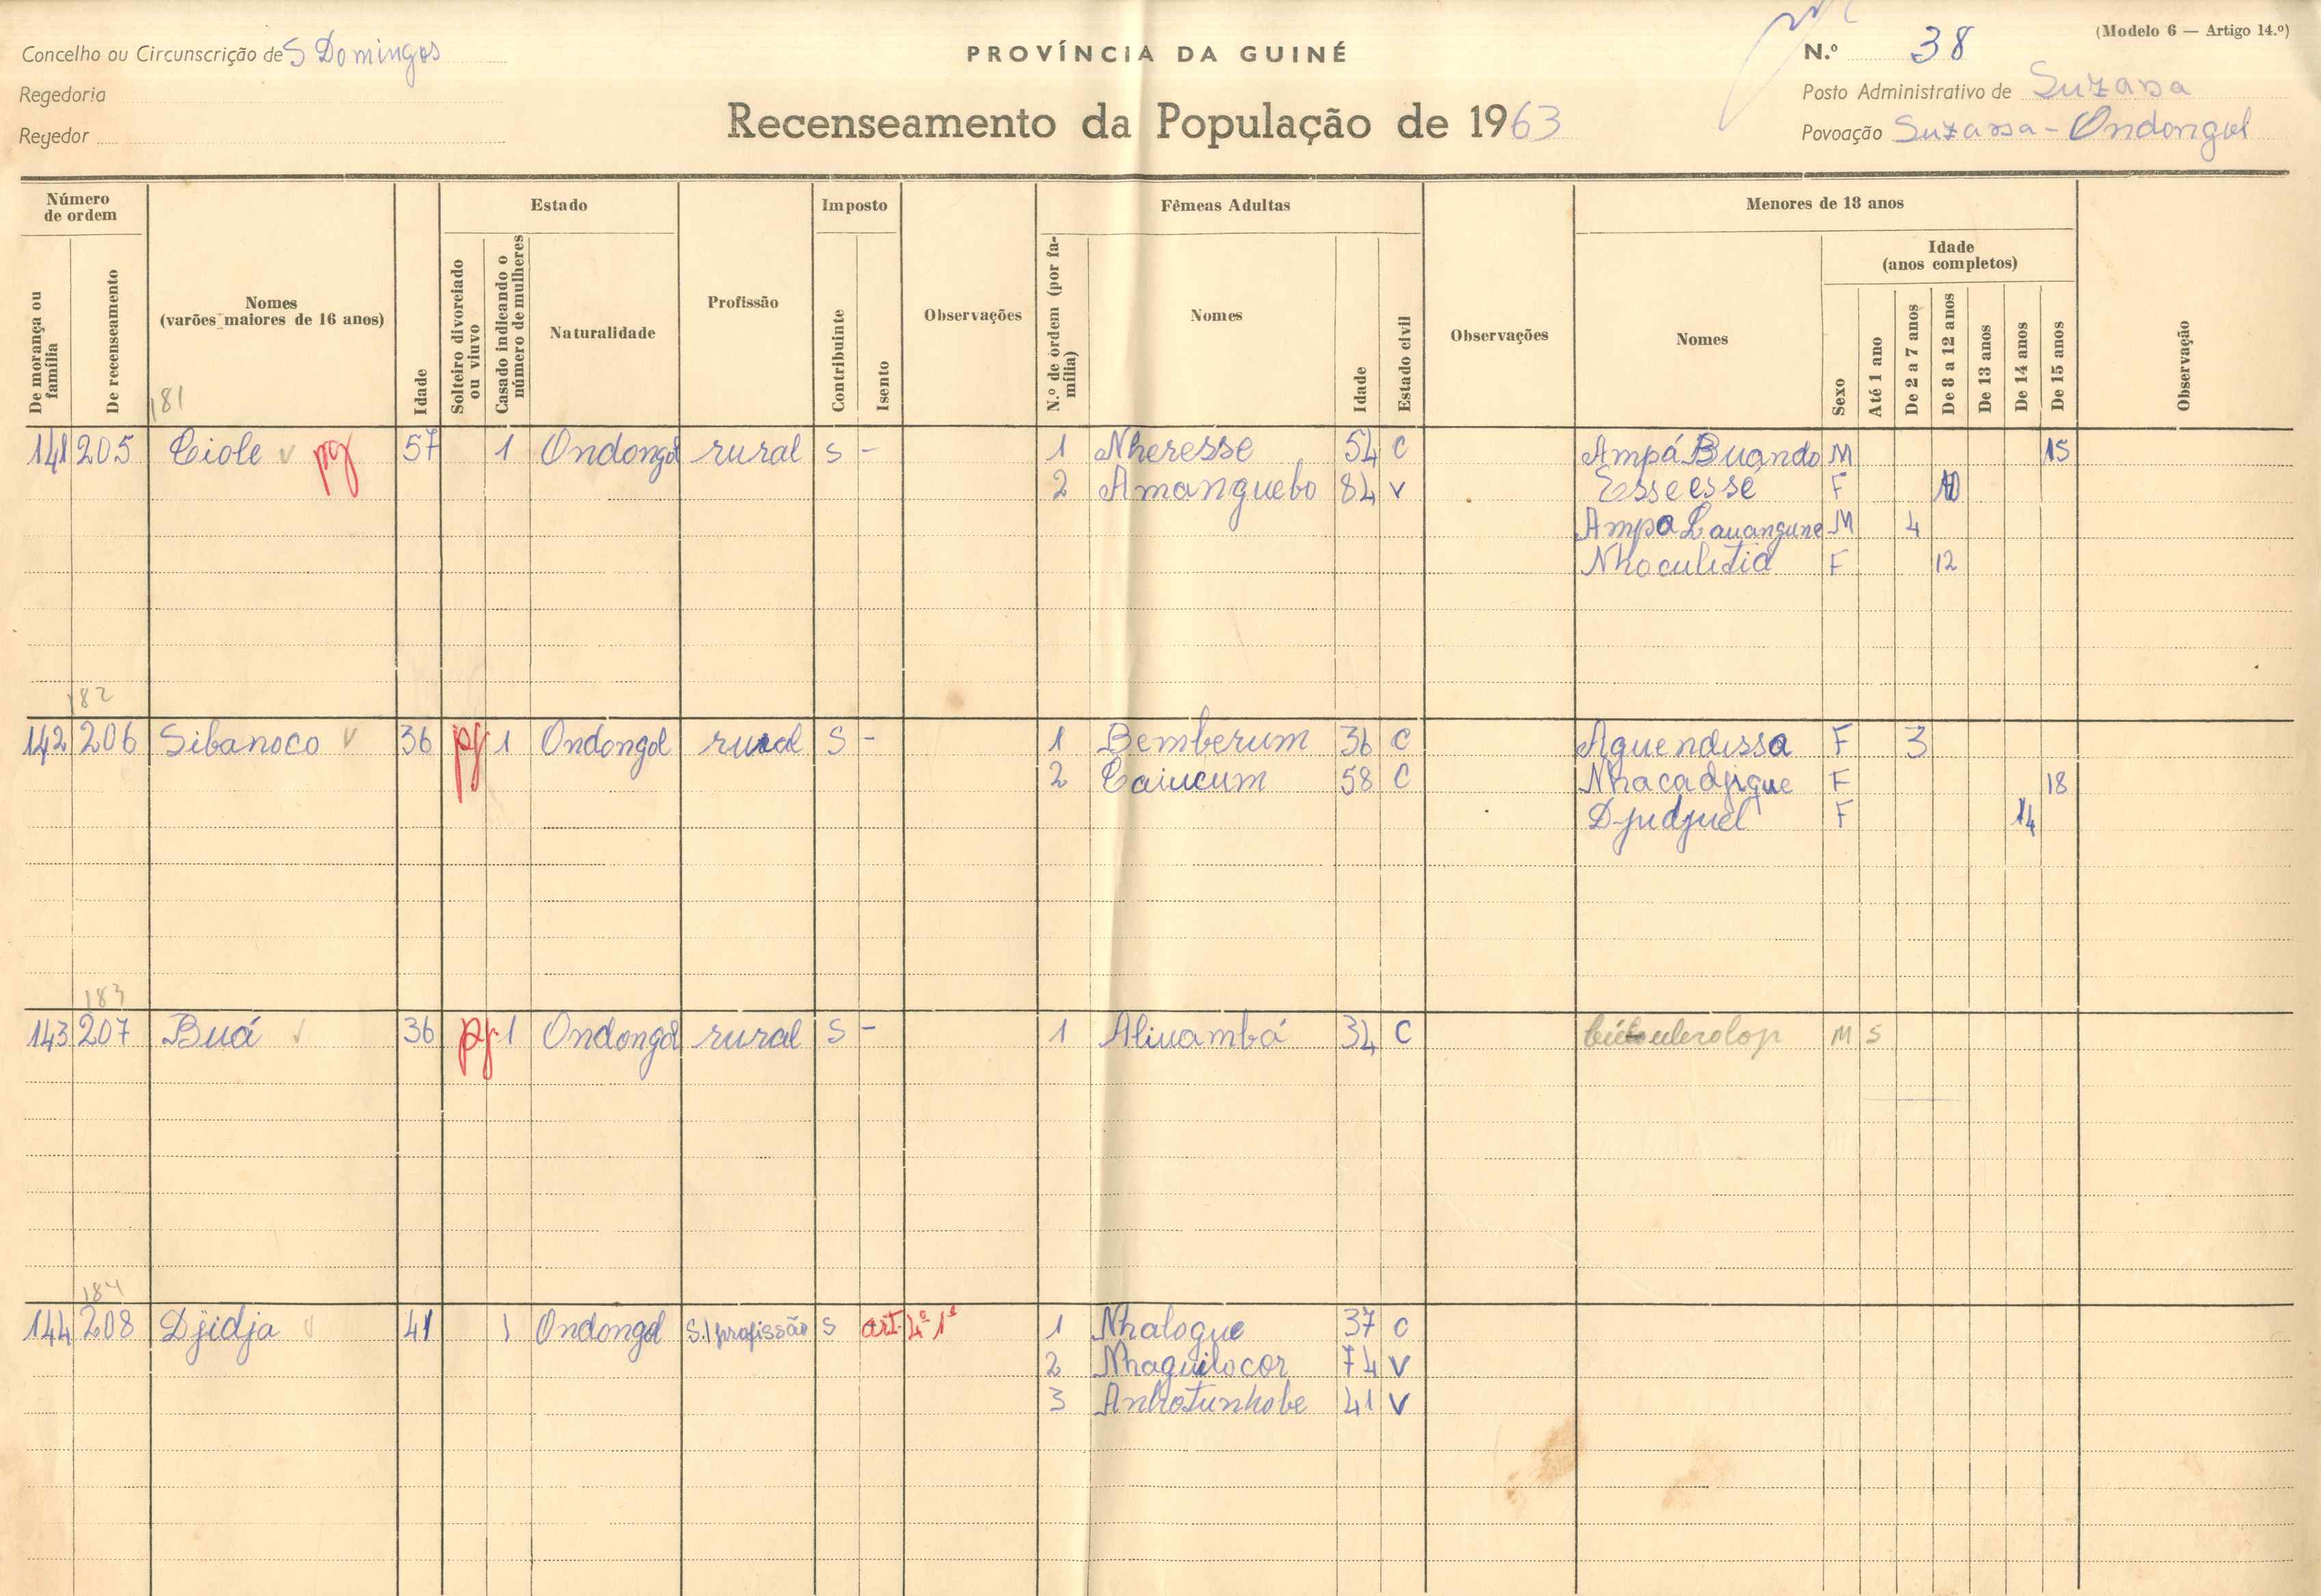 Concelho ou Circunscrição de S Domingos
Regedoria
Regedor
PROVÍNCIA DA GUINÉ
Recenseamento da População de 1963
(Modelo 6 — Artigo 14.º)
N.º 38
Posto Administrativo de Suzana
Povoação Suzana - Ondongol
Número de ordem
De morança ou família
De recenseamento
Nomes
(varões maiores de 16 anos)
Idade
Estado
Solteiro divorciado ou viuvo
Casado indicando o número de mulheres
Naturalidade
Profissão
Imposto
Contribuinte
Isento
Observações
Fêmeas Adultas
N.º de ordem (por família)
Nomes
Idade
Estado civil
Observações
Menores de 18 anos
Nomes
Sexo
Idade
(anos completos)
Até 1 ano
De 2 a 7 anos
De 8 a 12 anos
De 13 anos
De 14 anos
De 15 anos
Observação
181
141 205 Ciole v pg 57 1 Ondongol rural S - 1 Nheresse 54 C Ampá Buando M 15
2 Amanguebo 84 V Esseesse F 10
Ampa Lauangune M 4
Nhoculitia F 12
182
142 206 Sibanoco v 36 pg 1 Ondongol rural S - 1 Bemberum 36 C Aguendissa F 3
2 Caiucum 58 C Nhacadjigue F 18
Djudjuel F 14
183
143 207 Buá v 36 pg 1 Ondongol rural S - 1 Aliuambá 34 C M S
184
144 208 Djidja v 41 1 Ondongol S./profissão S art. 4º 1º 1 Nhalogue 37 C
2 Nhaguilocor 74 V
3 Anhotunhobe 41 V